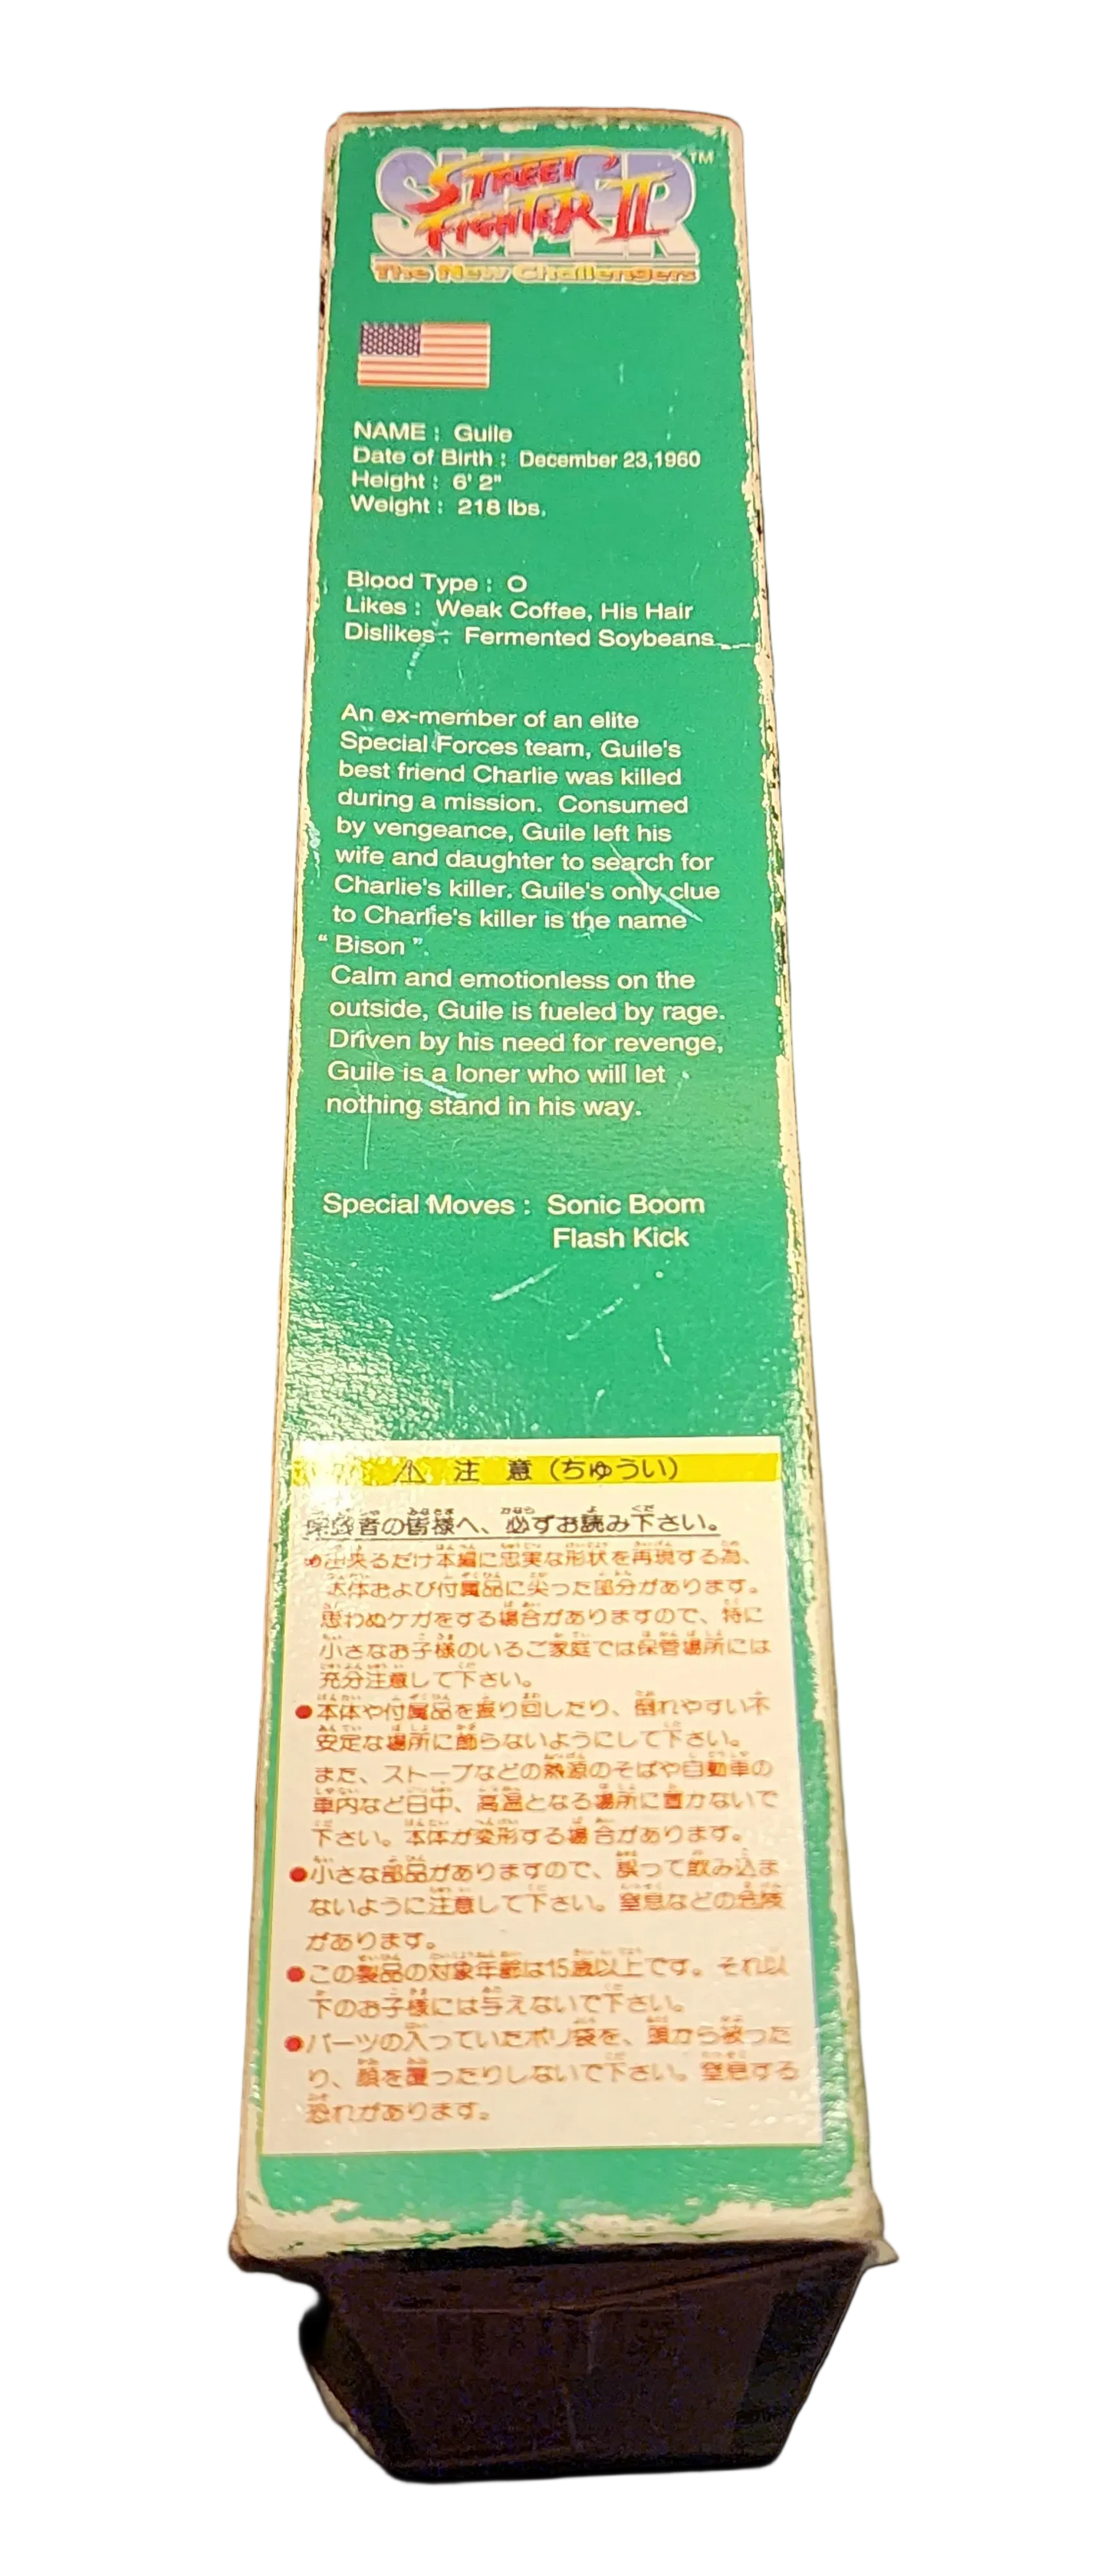 SUPER
STREET
FIGHTER II ™
The New Challengers
NAME : Guile
Date of Birth : December 23,1960
Height : 6' 2"
Weight : 218 lbs.
Blood Type : O
Likes : Weak Coffee, His Hair
Dislikes : Fermented Soybeans
An ex-member of an elite
Special Forces team, Guile's
best friend Charlie was killed
during a mission. Consumed
by vengeance, Guile left his
wife and daughter to search for
Charlie's killer. Guile's only clue
to Charlie's killer is the name
“ Bison ”
Calm and emotionless on the
outside, Guile is fueled by rage.
Driven by his need for revenge,
Guile is a loner who will let
nothing stand in his way.
Special Moves : Sonic Boom
Flash Kick
⚠ 注 意 (ちゅうい)
保護者の皆様へ、必ずお読み下さい。
●出来るだけ本編に忠実な形状を再現する為、
本体および付属品に尖った部分があります。
思わぬケガをする場合がありますので、特に
小さなお子様のいるご家庭では保管場所には
充分注意して下さい。
●本体や付属品を振り回したり、倒れやすい不
安定な場所に飾らないようにして下さい。
また、ストーブなどの熱源のそばや自動車の
車内など日中、高温となる場所に置かないで
下さい。本体が変形する場合があります。
●小さな部品がありますので、誤って飲み込ま
ないように注意して下さい。窒息などの危険
があります。
●この製品の対象年齢は15歳以上です。それ以
下のお子様には与えないで下さい。
●パーツの入っていたポリ袋を、頭から被った
り、顔を覆ったりしないで下さい。窒息する
恐れがあります。